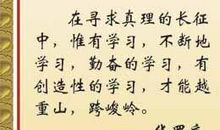 在寻求真理的长征
中，惟有学习，不断地
学习，勤奋的学习，有
创造性的学习，才能越
重山，跨峻岭。